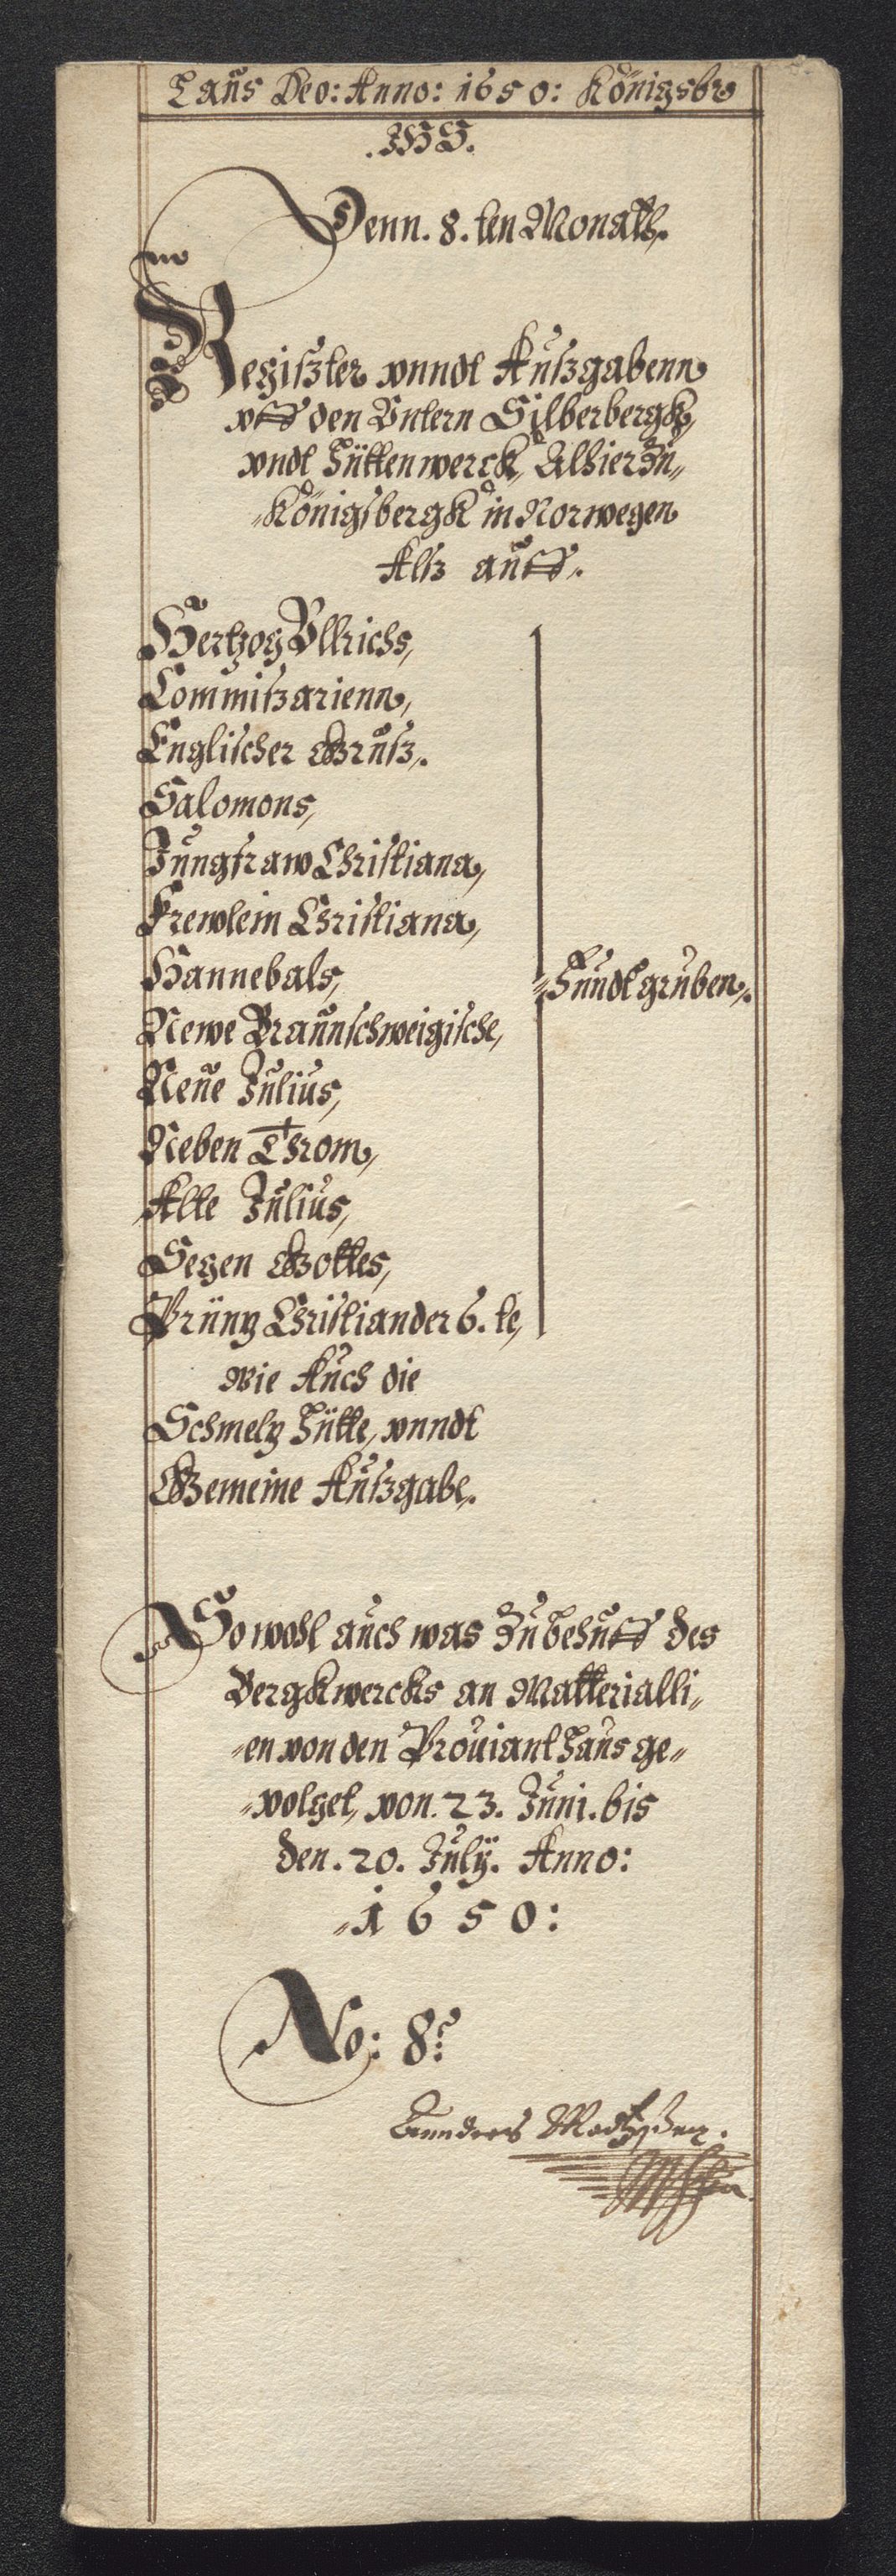 Laus Deo: Anno: 1650: Königsb
.IHS.
Denn. 8. ten Monath.
Regiszter vnndt Auszgabenn
vff den Vntern Silberbergk,
vndt Hüttenwerck, Alhier Zu„
„Königsbergk in Norwegen
Alsz auff.
Hertzog Vllrichs,
Commiszarienn,
Englischer Grusz.
Salomons,
Jungfraw Christiana,
Frewlein Christiana,
Hannebals,
„Fundtgruben.
Newe Braunschweigische,
Neue Julius,
Neben Throm,
Alte Julius,
Segen Gottes,
Printz Christian der 6. te,
wie Auch die
Schmeltz Hütte, vnndt
Gemeine Auszgabe.
So wohl auch was Zu behuff des
Bergkwercks an Matterialli„
„en von den Prouiant Haus ge„
„volget, von. 23. Juni. bis
den. 20. July. Anno:
„1650:
No: 8: